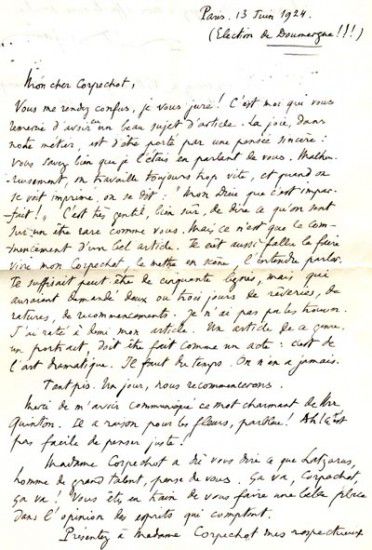 Paris. 13 Juin 1924.
(Election de Doumergue!!!)
Mon cher Corpechot,
Vous me rendez confus, je vous jure! C'est moi qui vous
remercie d'avoir eu un beau sujet d'article. La joie, dans
notre métier, est d'être porté par une pensée sincère:
vous savez bien que je l'étais en parlant de vous. Malheu-
reusement, on travaille toujours trop vite, et quand on
se voit imprimé, on se dit: "Mon Dieu que c'est impar-
fait!" C'est très gentil, bien sûr, de dire ce qu'on sent
sur un être rare comme vous. Mais ce n'est que le com-
mencement d'un tel article. Il eût aussi fallu le faire
vivre mon Corpechot, le mettre en scène, l'entendre parler.
Il suffisait peut être de cinquante lignes, mais qui
auraient demandé deux ou trois jours de rêveries, de
ratures, de recommencements. Je n'ai pas pu les trouver.
J'ai raté à demi mon article. Un article de ce genre,
un portrait, doit être fait comme un acte: c'est de
l'art dramatique. Il faut du temps. On n'en a jamais.
Tant pis. Un jour, nous recommencerons.
Merci de m'avoir communiqué ce mot charmant de
Quinton. Il a raison pour les fleurs, parbleu! Ah! c'est
pas facile de penser juste!
Madame Corpechot a dû vous dire ce que Latzarus,
homme de grand talent, pense de vous. Ça va, Corpechot,
ça va! Vous êtes en train de vous faire une belle place
dans l'opinion des esprits qui comptent.
Présentez à Madame Corpechot mes respectueux